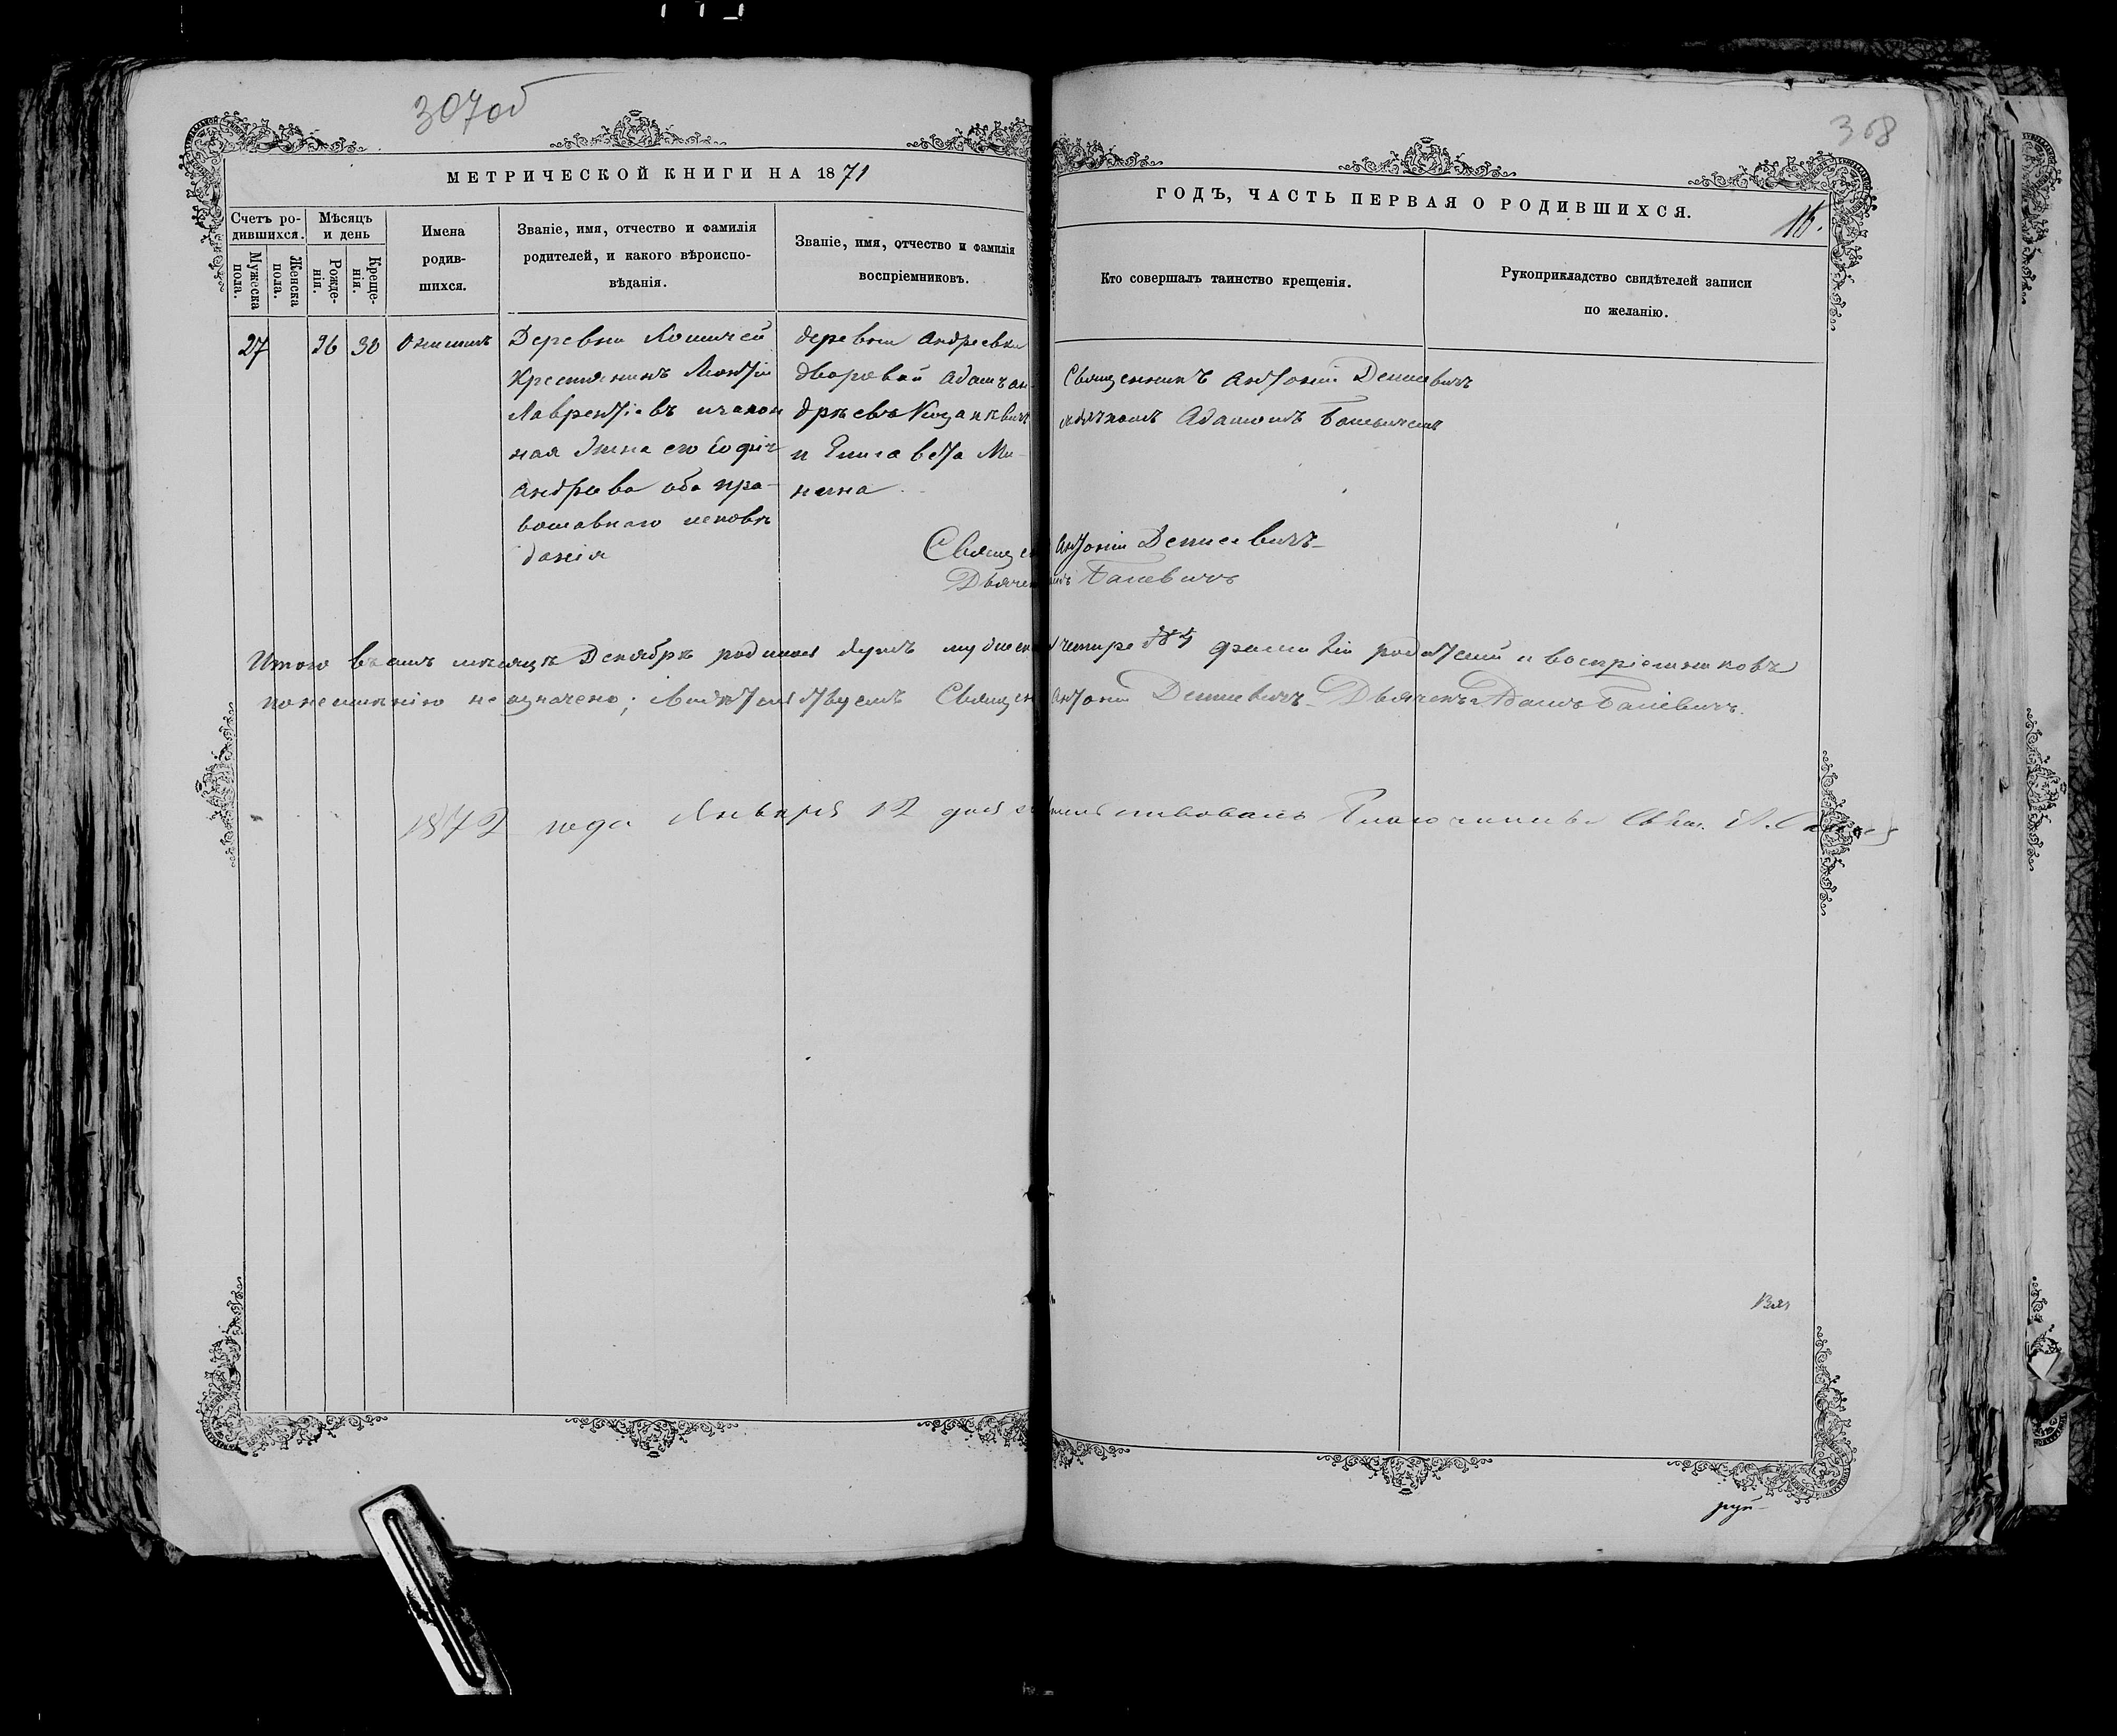 307об
308
МЕТРИЧЕСКОЙ КНИГИ НА 1871
ГОДЪ, ЧАСТЬ ПЕРВАЯ О РОДИВШИХСЯ.
16.
Счетъ ро-
дившихся.
Мужеска пола.
Женска пола.
Мѣсяцъ
и день
Рожде-
нія.
Креще-
нія.
Имена
родив-
шихся.
Званіе, имя, отчество и фамилія
родителей, и какого вѣроиспо-
вѣданія.
Званіе, имя, отчество и фамилія
воспріемниковъ.
Кто совершалъ таинство крещенія.
Рукоприкладство свидѣтелей записи
по желанію.
27
26
30
Онисимъ
Деревни
Крестянинъ Леонтій
Лаврентіевъ и закон
ная жена его Софія
Андреева оба пра-
вославнаго исповѣ
данія
деревни Андреевки
дворовой Адамъ Ан-
дрѣевъ
и Елисавета Ми-
нина
Священникъ Антоній Денисевичъ
съ дьячкомъ Адамомъ
Священ Антоній Денисевичъ
Дьячекъ
Итого въ семъ мѣсяцѣ Декабрѣ родилось душъ мужеска четыре фамилій родителей и воспріемниковъ
понеимѣнію не означено; Свидѣтельствуемъ Священ Антоній Денисевичъ Дьячекъ Адамъ
1872 года Января 12 дня свидѣтельствовалъ Благочинный Свящ.